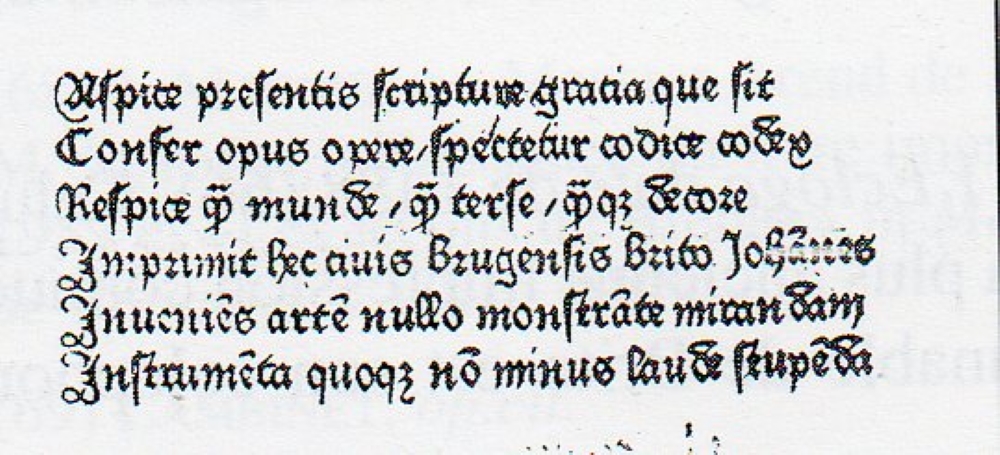 Aspice presentis scripture gratia que sit
Confer opus opere, spectetur codice codex
Respice q̃ munde, q̃ terse, q̃qꝫ decore
Imprimit hec ciuis brugensis brito Johãnes
Inueniẽs artẽ nullo monstrãte mirandam
Instrumẽta quoqꝫ nõ minus laude stupẽda